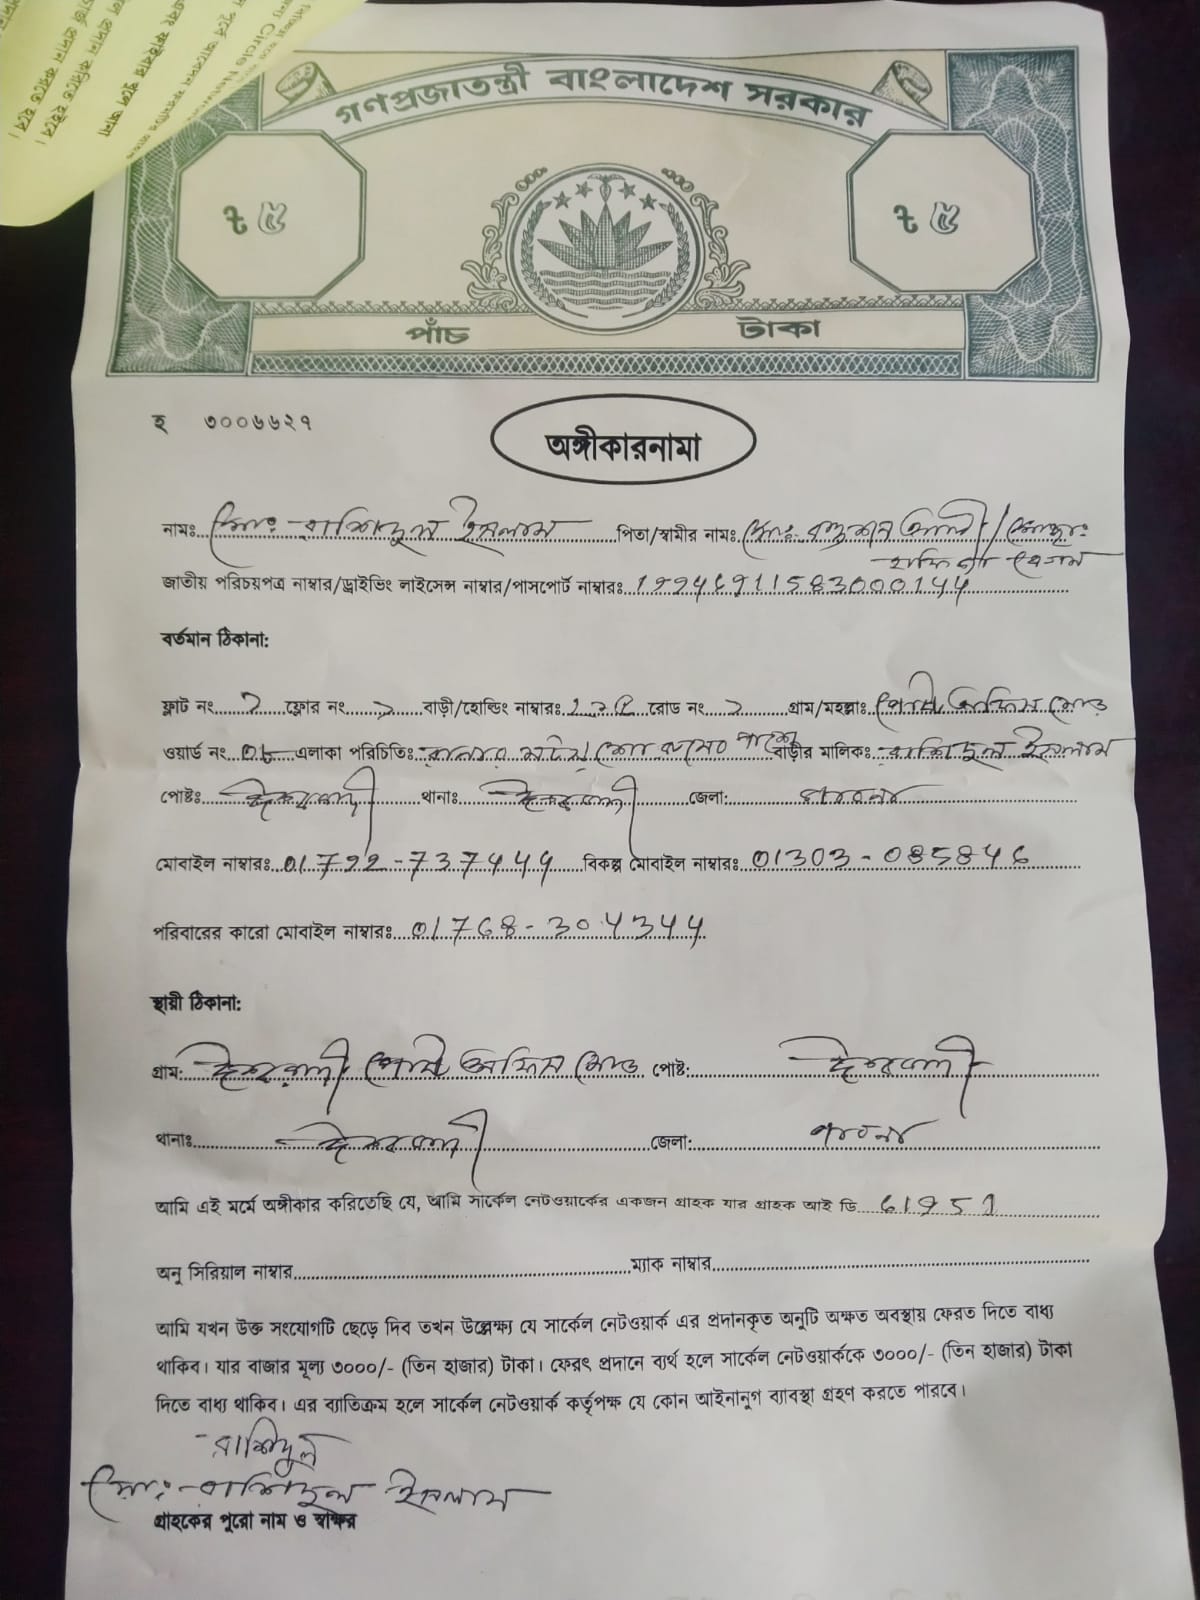 গণপ্রজাতন্ত্রী বাংলাদেশ সরকার
ট ৫ ট ৫
পাঁচ টাকা
হ ৩০০৬৬২৭
অঙ্গীকারনামা
নামঃ মোঃ রাশিদুল ইসলাম পিতা/স্বামীর নামঃ মোঃ আলী / মোছাঃ
বেগম
জাতীয় পরিচয়পত্র নাম্বার/ড্রাইভিং লাইসেন্স নাম্বার/পাসপোর্ট নাম্বারঃ
বর্তমান ঠিকানা:
ফ্লাট নং ফ্লোর নং বাড়ী/হোল্ডিং নাম্বারঃ রোড নং গ্রাম/মহল্লাঃ পোস্ট অফিস মোড়
ওয়ার্ড নং এলাকা পরিচিতিঃ পাশে বাড়ীর মালিকঃ রাশিদুল ইসলাম
পোষ্টঃ ঈশ্বরদী থানাঃ ঈশ্বরদী জেলা: পাবনা
মোবাইল নাম্বারঃ বিকল্প মোবাইল নাম্বারঃ 01303-085846
পরিবারের কারো মোবাইল নাম্বারঃ 01768-304344
স্থায়ী ঠিকানা:
গ্রাম: ঈশ্বরদী পোস্ট অফিস মোড় পোষ্ট: ঈশ্বরদী
থানাঃ ঈশ্বরদী জেলা: পাবনা
আমি এই মর্মে অঙ্গীকার করিতেছি যে, আমি সার্কেল নেটওয়ার্কের একজন গ্রাহক যার গ্রাহক আই ডি
অনু সিরিয়াল নাম্বার ম্যাক নাম্বার
আমি যখন উক্ত সংযোগটি ছেড়ে দিব তখন উল্লেক্ষ্য যে সার্কেল নেটওয়ার্ক এর প্রদানকৃত অনুটি অক্ষত অবস্থায় ফেরত দিতে বাধ্য
থাকিব। যার বাজার মূল্য ৩০০০/- (তিন হাজার) টাকা। ফেরৎ প্রদানে ব্যর্থ হলে সার্কেল নেটওয়ার্ককে ৩০০০/- (তিন হাজার) টাকা
দিতে বাধ্য থাকিব। এর ব্যাতিক্রম হলে সার্কেল নেটওয়ার্ক কর্তৃপক্ষ যে কোন আইনানুগ ব্যাবস্থা গ্রহণ করতে পারবে।
রাশিদুল
মোঃ রাশিদুল ইসলাম
গ্রাহকের পুরো নাম ও স্বাক্ষর